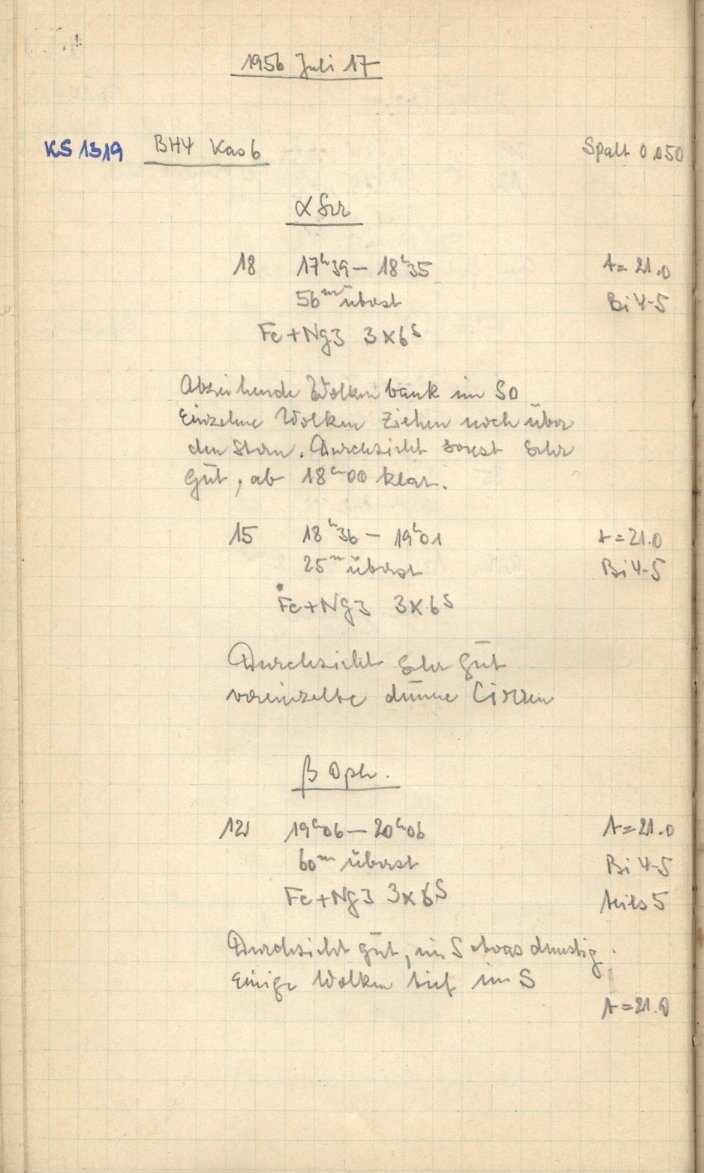 1956 Juli 17
KS 1319 BH4 Kas 6 Spalt 0.050
α Ser
18 17h39 – 18h35 t = 21.0
56m überst Bi 4-5
Fe + Ng3 3x6s
Abziehende Wolkenbank im SO
Einzelne Wolken ziehen noch über
den Stern. Durchsicht sonst sehr
gūt, ab 18h00 klar.
15 18h36 – 19h01 t = 21.0
25m überst Bi 4-5
Fe + Ng3 3x6s
Durchsicht sehr gūt
vereinzelte dünne Cirren
β Oph.
12 19h06 – 20h06 t = 21.0
60m überst Bi 4-5
Fe + Ng3 3x6s teils 5
Durchsicht gūt, im S etwas dunstig.
Einige Wolken tief im S
t = 21.0